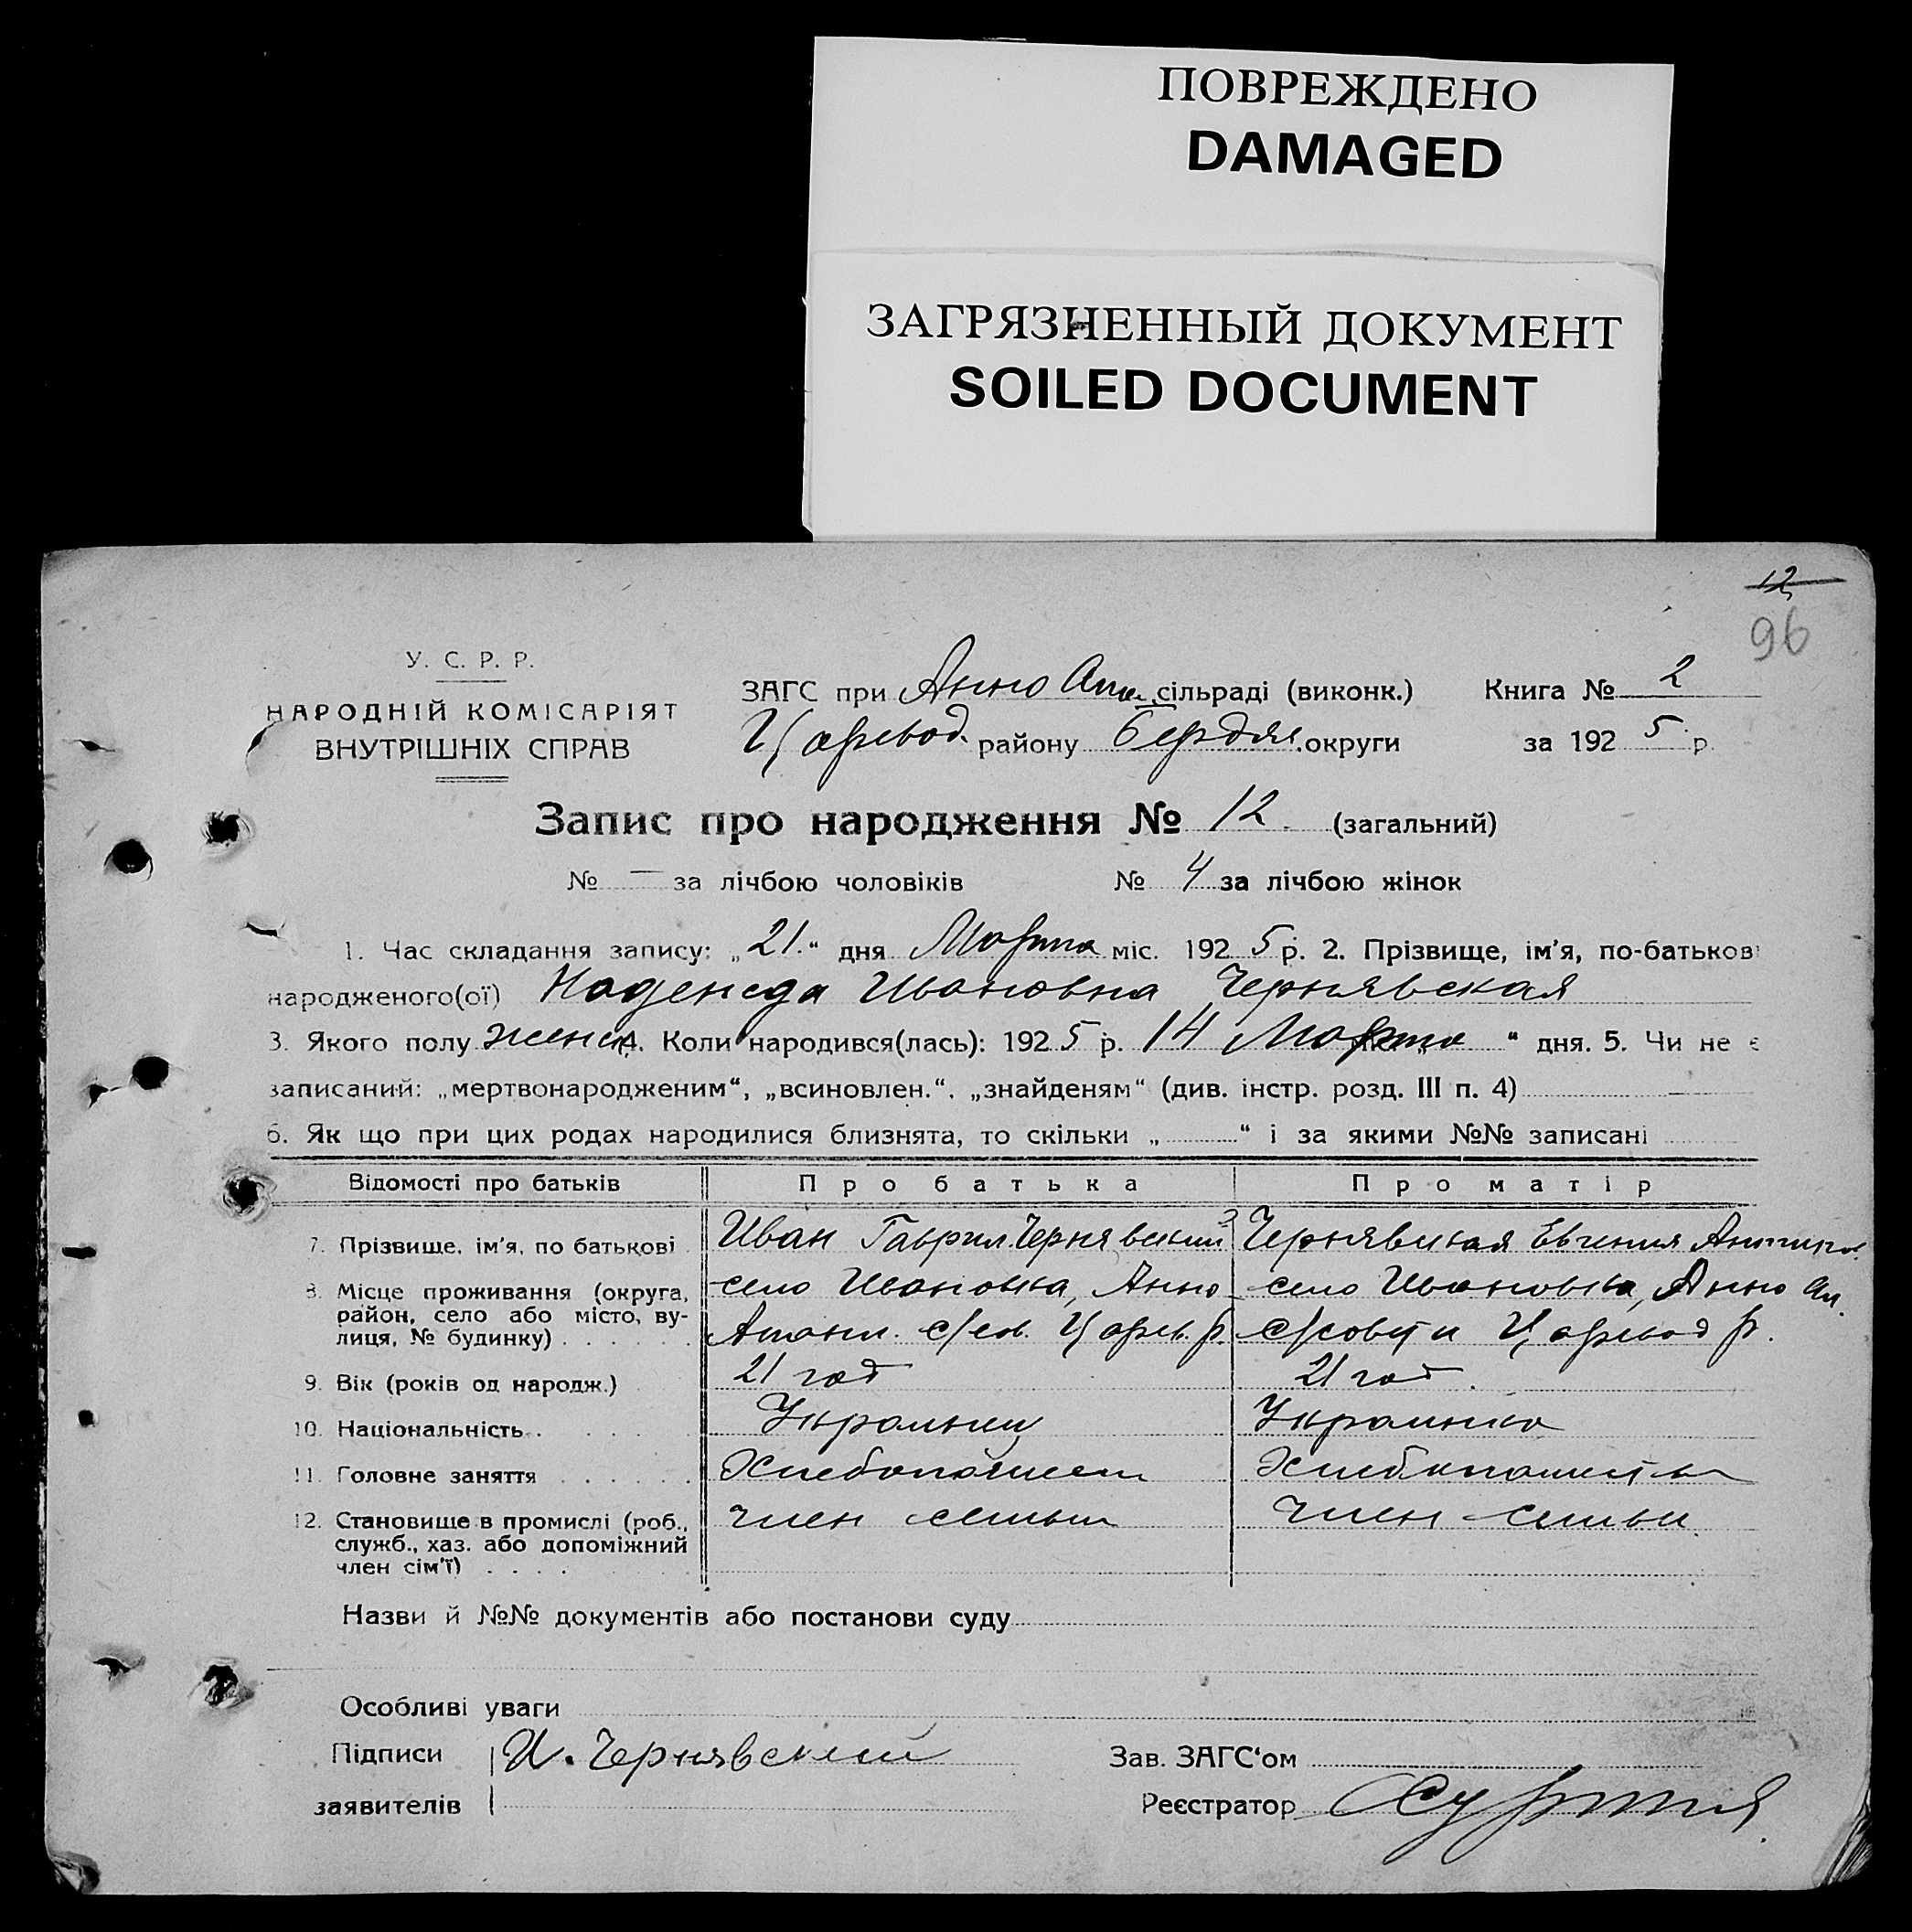 ПОВРЕЖДЕНО
DAMAGED
ЗАГРЯЗНЕННЫЙ ДОКУМЕНТ
SOILED DOCUMENT
12
96
У. С. Р. Р.
НАРОДНІЙ КОМІСАРІЯТ
ВНУТРІШНІХ СПРАВ
ЗАГС при Анно сільраді (виконк.) Книга № 2
Царевод. району Бердян. округи за 1925 р.
Запис про народження № 12. (загальний)
№ — за лічбою чоловіків № 4 за лічбою жінок
1. Час складання запису: „21.“ дня Марта міс. 1925 р. 2. Прізвище, ім'я, по-батькові
народженого(ої) Надежда Ивановна Чернявская
3. Якого полу женск 4. Коли народився(лась): 1925 р. 14 Марта “ дня. 5. Чи не є
записаний: „мертвонародженим“, „всиновлен.“, „знайденям“ (див. інстр. розд. III п. 4)
6. Як що при цих родах народилися близнята, то скільки „ “ і за якими №№ записані
Відомості про батьків Про батька Про матір
7. Прізвище, ім'я, по батькові Иван Гаврил. Чернявский Чернявская Евгения
8. Місце проживання (округа, село Ивановка, Анно село Ивановка, Анно Ап.
район, село або місто, ву- с/сов. Царев. р. с/совета Царевод р.
лиця, № будинку)
9. Вік (років од народж.) 21 год 21 год.
10. Національність Украинец Украинка
11. Головне заняття Хлебопашест Хлебопашество
12. Становище в промислі (роб., член семьи член семьи.
служб., хаз. або допоміжний
член сім'ї)
Назви й №№ документів або постанови суду
Особливі уваги
Підписи И. Чернявский Зав. ЗАГС'ом
заявителів Реєстратор